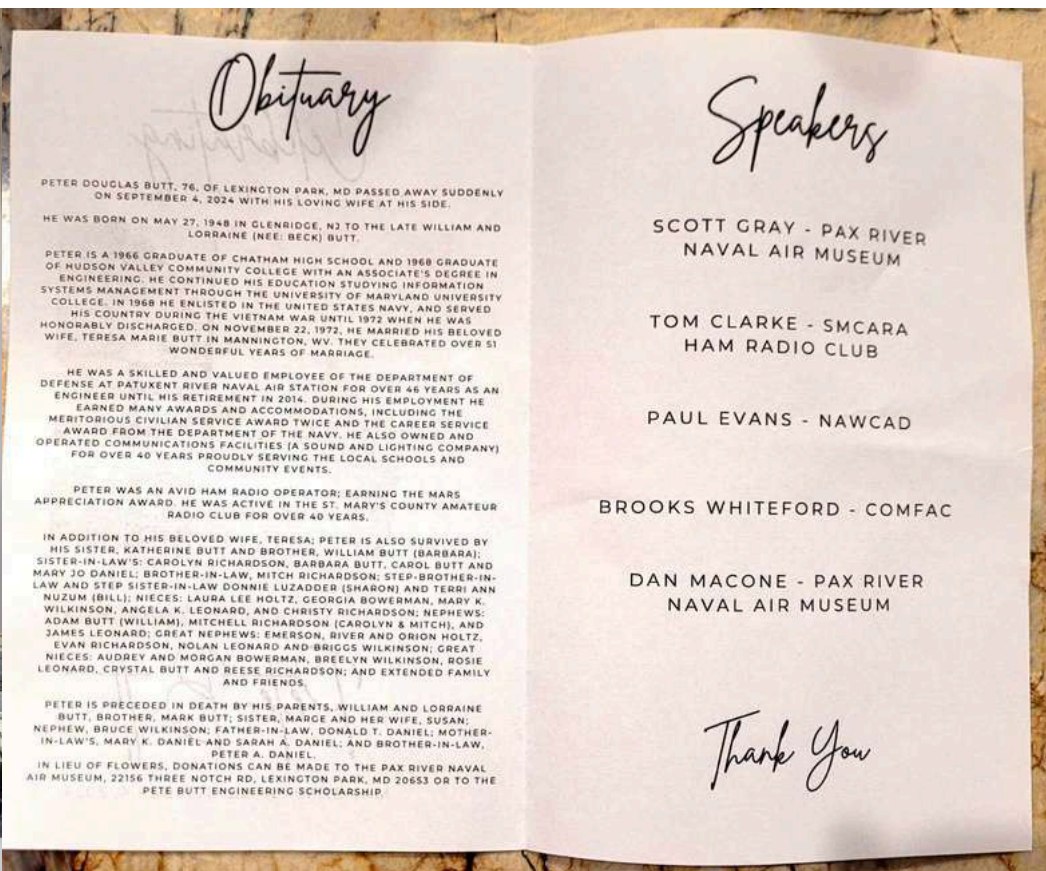 Obituary
PETER DOUGLAS BUTT, 76, OF LEXINGTON PARK, MD PASSED AWAY SUDDENLY
ON SEPTEMBER 4, 2024 WITH HIS LOVING WIFE AT HIS SIDE.
HE WAS BORN ON MAY 27, 1948 IN GLENRIDGE, NJ TO THE LATE WILLIAM AND
LORRAINE (NEE: BECK) BUTT.
PETER IS A 1966 GRADUATE OF CHATHAM HIGH SCHOOL AND 1968 GRADUATE
OF HUDSON VALLEY COMMUNITY COLLEGE WITH AN ASSOCIATE'S DEGREE IN
ENGINEERING. HE CONTINUED HIS EDUCATION STUDYING INFORMATION
SYSTEMS MANAGEMENT THROUGH THE UNIVERSITY OF MARYLAND UNIVERSITY
COLLEGE. IN 1968 HE ENLISTED IN THE UNITED STATES NAVY, AND SERVED
HIS COUNTRY DURING THE VIETNAM WAR UNTIL 1972 WHEN HE WAS
HONORABLY DISCHARGED. ON NOVEMBER 22, 1972, HE MARRIED HIS BELOVED
WIFE, TERESA MARIE BUTT IN MANNINGTON, WV. THEY CELEBRATED OVER 51
WONDERFUL YEARS OF MARRIAGE.
HE WAS A SKILLED AND VALUED EMPLOYEE OF THE DEPARTMENT OF
DEFENSE AT PATUXENT RIVER NAVAL AIR STATION FOR OVER 46 YEARS AS AN
ENGINEER UNTIL HIS RETIREMENT IN 2014. DURING HIS EMPLOYMENT HE
EARNED MANY AWARDS AND ACCOMMODATIONS, INCLUDING THE
MERITORIOUS CIVILIAN SERVICE AWARD TWICE AND THE CAREER SERVICE
AWARD FROM THE DEPARTMENT OF THE NAVY. HE ALSO OWNED AND
OPERATED COMMUNICATIONS FACILITIES (A SOUND AND LIGHTING COMPANY)
FOR OVER 40 YEARS PROUDLY SERVING THE LOCAL SCHOOLS AND
COMMUNITY EVENTS.
PETER WAS AN AVID HAM RADIO OPERATOR; EARNING THE MARS
APPRECIATION AWARD. HE WAS ACTIVE IN THE ST. MARY'S COUNTY AMATEUR
RADIO CLUB FOR OVER 40 YEARS.
IN ADDITION TO HIS BELOVED WIFE, TERESA; PETER IS ALSO SURVIVED BY
HIS SISTER, KATHERINE BUTT AND BROTHER, WILLIAM BUTT (BARBARA);
SISTER-IN-LAW'S: CAROLYN RICHARDSON, BARBARA BUTT, CAROL BUTT AND
MARY JO DANIEL; BROTHER-IN-LAW, MITCH RICHARDSON; STEP-BROTHER-IN-
LAW AND STEP SISTER-IN-LAW DONNIE LUZADDER (SHARON) AND TERRI ANN
NUZUM (BILL); NIECES: LAURA LEE HOLTZ, GEORGIA BOWERMAN, MARY K.
WILKINSON, ANGELA K. LEONARD, AND CHRISTY RICHARDSON; NEPHEWS:
ADAM BUTT (WILLIAM), MITCHELL RICHARDSON (CAROLYN & MITCH), AND
JAMES LEONARD; GREAT NEPHEWS: EMERSON, RIVER AND ORION HOLTZ,
EVAN RICHARDSON, NOLAN LEONARD AND BRIGGS WILKINSON; GREAT
NIECES: AUDREY AND MORGAN BOWERMAN, BREELYN WILKINSON, ROSIE
LEONARD, CRYSTAL BUTT AND REESE RICHARDSON; AND EXTENDED FAMILY
AND FRIENDS.
PETER IS PRECEDED IN DEATH BY HIS PARENTS, WILLIAM AND LORRAINE
BUTT, BROTHER, MARK BUTT; SISTER, MARGE AND HER WIFE, SUSAN;
NEPHEW, BRUCE WILKINSON; FATHER-IN-LAW, DONALD T. DANIEL; MOTHER-
IN-LAW'S, MARY K. DANIEL AND SARAH A. DANIEL; AND BROTHER-IN-LAW,
PETER A. DANIEL.
IN LIEU OF FLOWERS, DONATIONS CAN BE MADE TO THE PAX RIVER NAVAL
AIR MUSEUM, 22156 THREE NOTCH RD, LEXINGTON PARK, MD 20653 OR TO THE
PETE BUTT ENGINEERING SCHOLARSHIP.
Speakers
SCOTT GRAY - PAX RIVER
NAVAL AIR MUSEUM
TOM CLARKE - SMCARA
HAM RADIO CLUB
PAUL EVANS - NAWCAD
BROOKS WHITEFORD - COMFAC
DAN MACONE - PAX RIVER
NAVAL AIR MUSEUM
Thank You